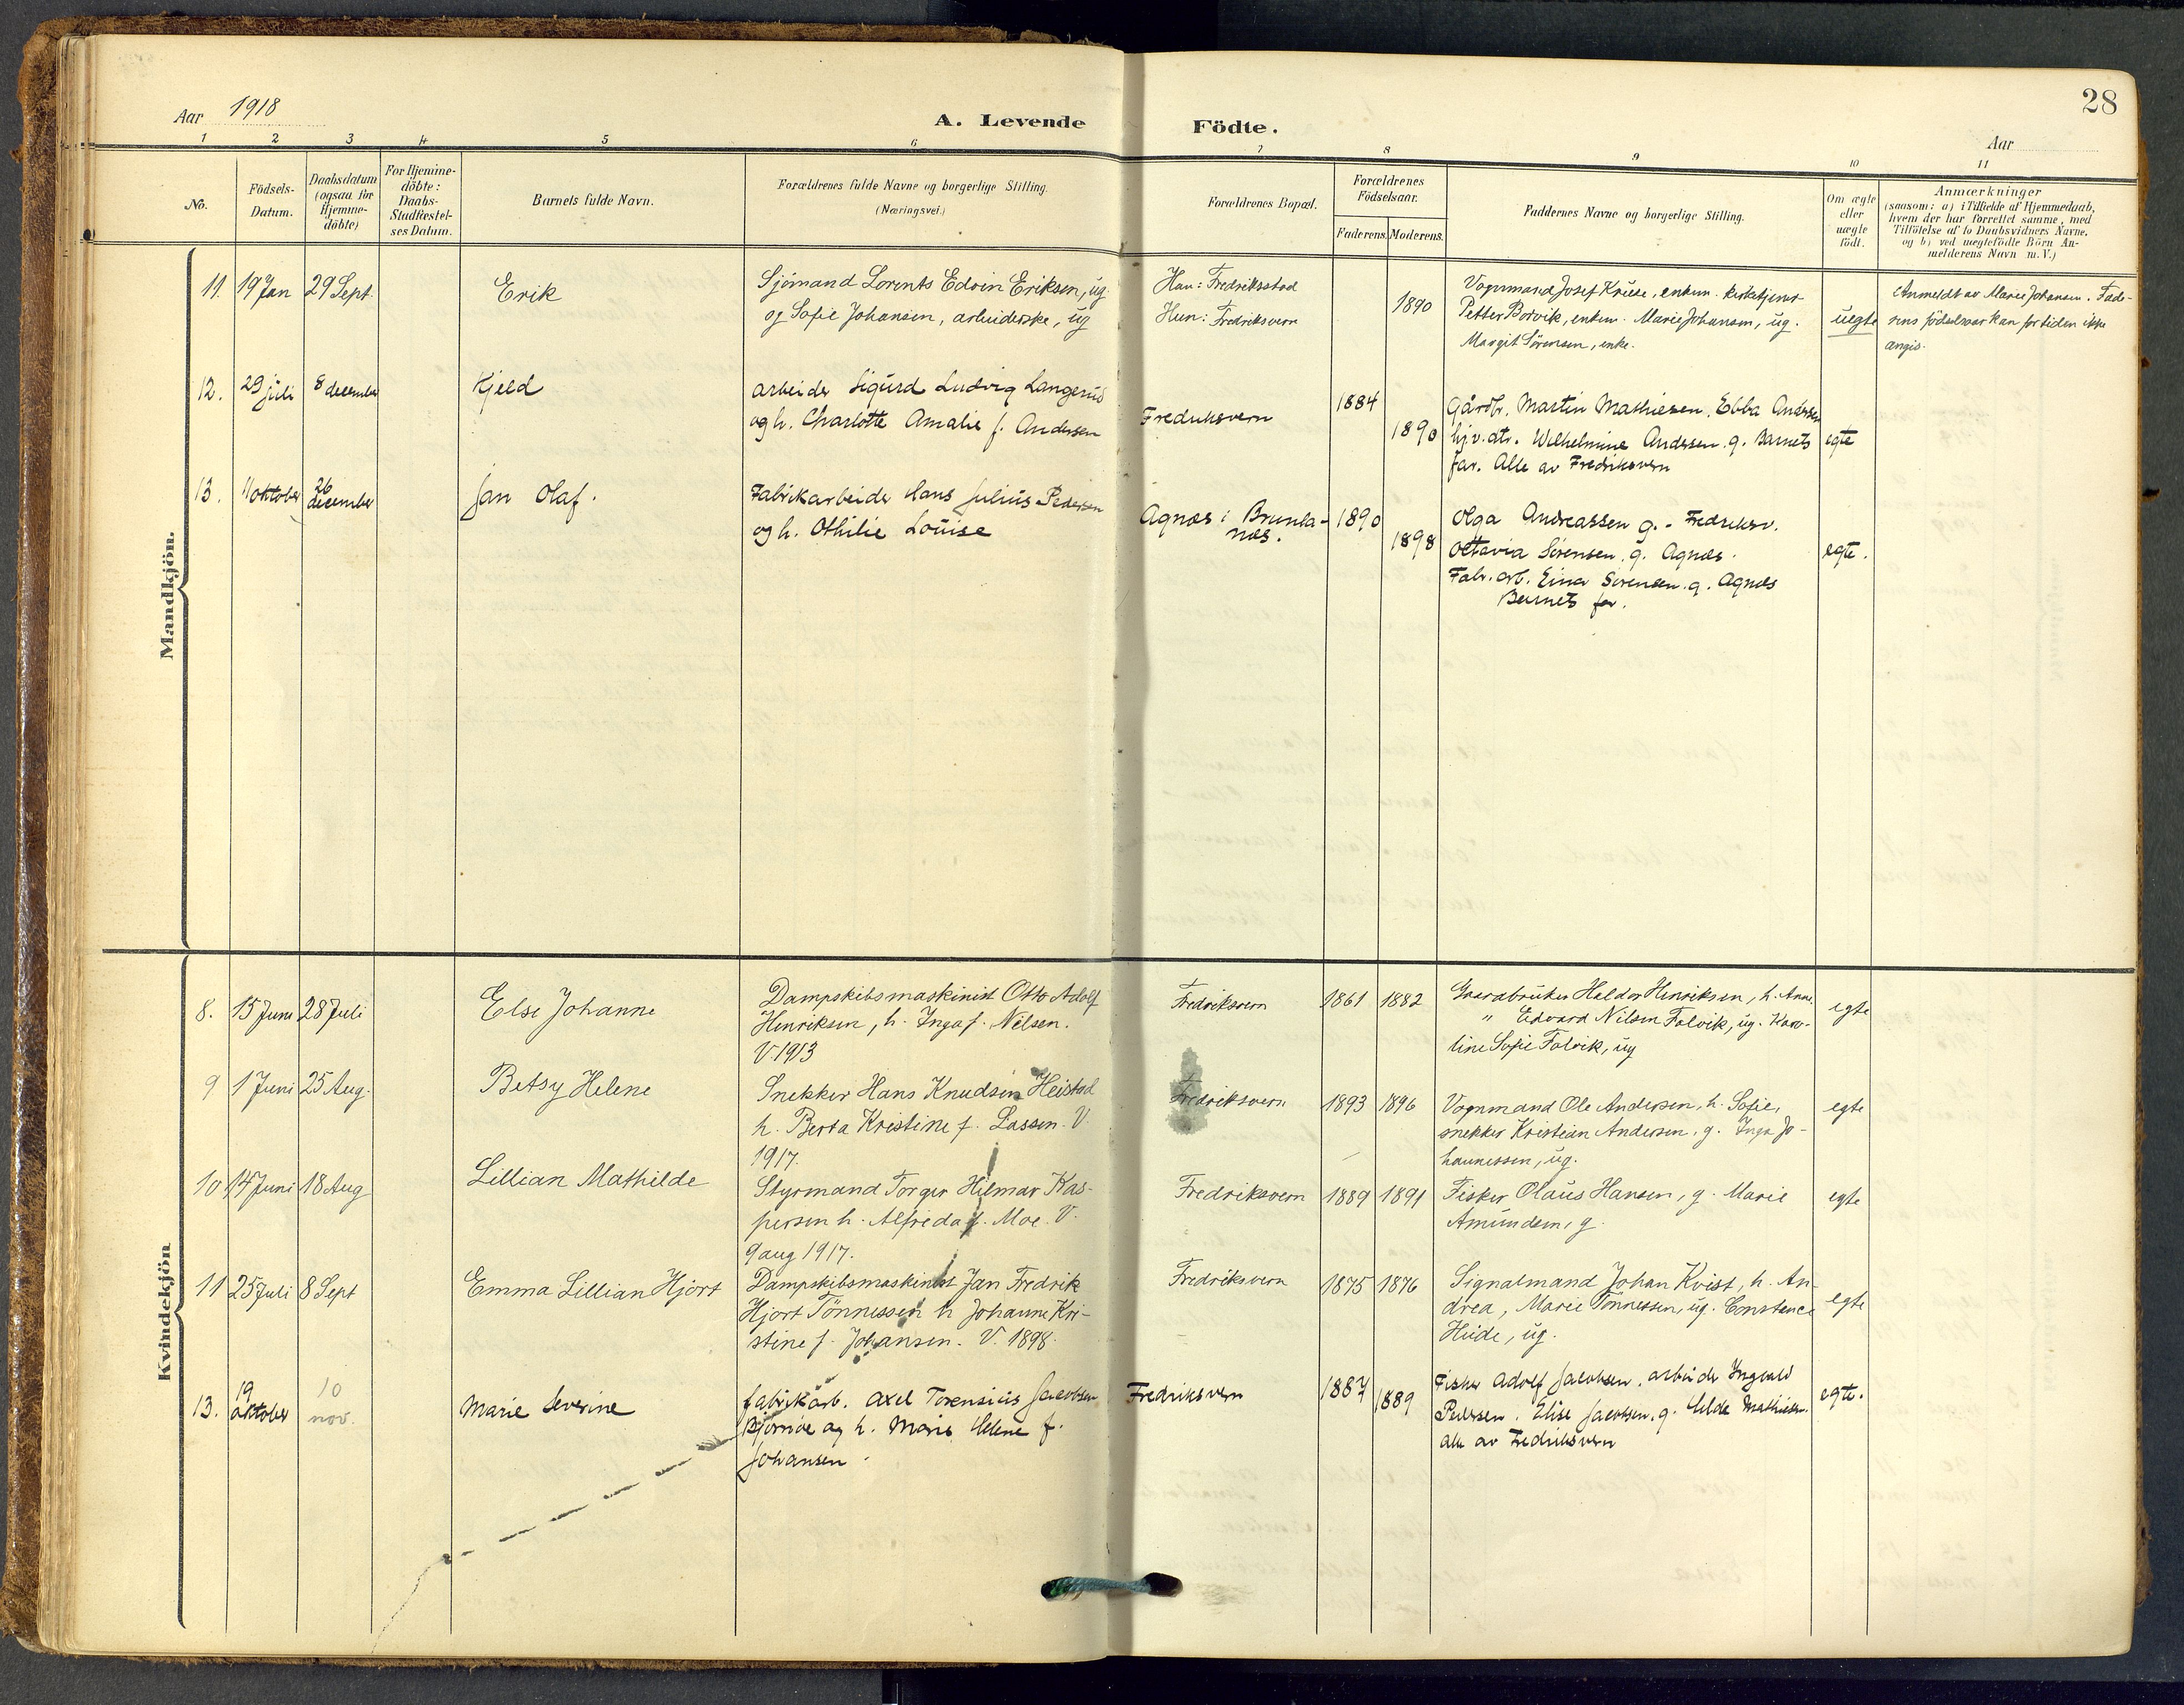 28
Aar 1918
A. Levende Födte.
Aar
1 2 3 4 5 6 7 8 9 10 11
No.
Födsels-
Datum.
Daabsdatum
(ogsaa for
Hjemme-
döbte)
For Hjemme-
döbte:
Daabs-
Stadfæstel-
ses Datum.
Barnets fulde Navn.
Forældrenes fulde Navne og borgerlige Stilling.
(Næringsvei.)
Forældrenes Bopæl.
Forældrenes
Födselsaar.
Faderens. Moderens.
Faddernes Navne og borgerlige Stilling.
Om ægte
eller
uægte
födt.
Anmærkninger
(saasom: a) i Tilfælde af Hjemmedaab,
hvem der har forrettet samme, med
Tilföielse af to Daabsvidners Navne,
og b) ved uægtefödte Börn An-
melderens Navn m.V.)
Mandkjön.
11. 19 Jan 29 Sept. Erik
Sjömand Lorents Edvin Eriksen, ug.
og Sofie Johansen, arbeiderske, ug
Han: Fredriksstad
Hun: Fredriksvern
1890
Vognmand Josef Kruse, enkem. kirketjener
Petter Borvik, enkem. Marie Johansen, ug.
Margit Sörensen, enke.
uegte
Anmeldt av Marie Johansen. Fade-
rens födselsaar kan for tiden ikke
angis.
12. 29 juli 8 december Kjeld
arbeider Sigurd Ludvig Langerud
og h. Charlotte Amalie f. Andersen
Fredriksvern
1884
1890
Gårdbr. Martin Mathiesen, Ebba Anderssen
hjv. dtr. Wilhelmine Anderssen. g. Barnets
far. Alle av Fredriksvern
egte
13. 11 oktober 26
december
Jan Olaf.
Fabrikarbeider Hans Julius Pedersen
og h. Othilie Louise
Agnes i Brunla-
nes.
1890
1898
Olga Andreassen g. - Fredriksv.
Octavia Sörensen. g. Agnes.
Fabr. arb. Einar Sörensen. g. Agnes
Barnets far.
egte.
Kvindekjön
8. 15 Juni 28 Juli Else Johanne
Dampskibsmaskinist Otto Adolf
Henriksen, h. Inga f. Nilsen.
V. 1913
Fredriksvern 1861 1882
Gaardbruker Haldor Henriksen, h. Anne.
" Edvard Nilsen Falvik, ug. Karo-
line Sofie Falvik, ug
egte
9 1 Juni 25 Aug. Betsy Helene
Snekker Hans Knudsen Heistad
h. Berta Kristine f. Lassen. V.
1917.
Fredriksvern 1893 1896
Vognmand Ole Andersen, h. Sofie,
snekker Kristian Andersen, g. Inga Jo-
hannessen, ug.
egte
10 14 Juni 18 Aug Lillian Mathilde
Styrmand Torger Hilmar Kas-
persen h. Alfreda f. Moe. V.
9 aug 1917.
Fredriksvern 1889 1891
Fisker Olaus Hansen, g. Marie
Amundsen, g.
egte
11 25 Juli 8 Sept Emma Lillian Hjort
Dampskibsmaskinist Jan Fredrik
Hjort Tönnessen h Johanne Kri-
stine f. Johansen. V. 1898.
Fredriksvern 1875 1876
Signalmand Johan Kvist, h. An-
drea, Marie Tönnessen, ug. Constance
ug.
egte
13. 19
oktober
10
nov.
Marie Severine
fabrikarb. Axel Jacobsen
Bjørnöe og h. Marie Helene f.
Johansen.
Fredriksvern 1887 1889
Fisker Adolf Jacobsen, arbeider Ingvald
Pedersen. Elise Jacobsen. g. Hilda Mathisen.
alle av Fredriksvern
egte.